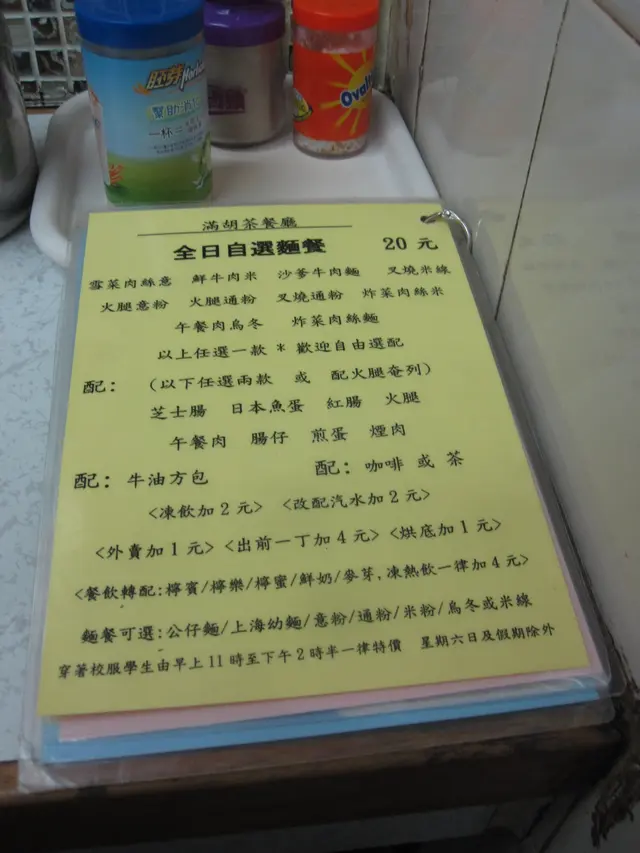 旺芽Horlicks
幫助消化
一杯=
Ovaltine
滿胡茶餐廳
全日自選麵餐 20元
雪菜肉絲意 鮮牛肉米 沙爹牛肉麵 叉燒米線
火腿意粉 火腿通粉 叉燒通粉 炸菜肉絲米
午餐肉烏冬 炸菜肉絲麵
以上任選一款 * 歡迎自由選配
配: (以下任選兩款 或 配火腿奄列)
芝士腸 日本魚蛋 紅腸 火腿
午餐肉 腸仔 煎蛋 煙肉
配: 牛油方包 配: 咖啡 或 茶
<凍飲加2元> <改配汽水加2元>
<外賣加1元> <出前一丁加4元> <烘底加1元>
<餐飲轉配:檸賓/檸樂/檸蜜/鮮奶/麥芽,凍熱飲一律加4元>
麵餐可選:公仔麵/上海幼麵/意粉/通粉/米粉/烏冬或米線
穿著校服學生由早上11時至下午2時半一律特價 星期六日及假期除外